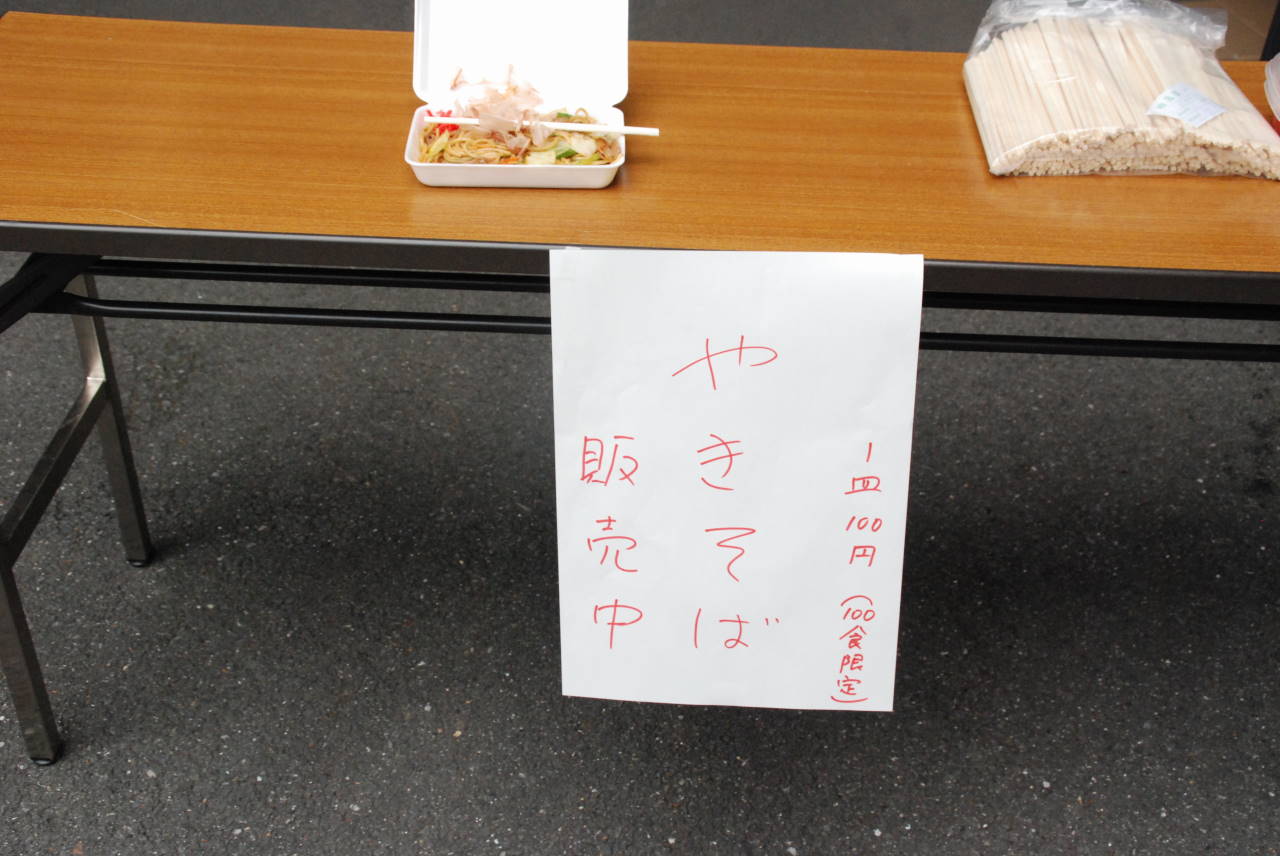 一皿100円(100食限定)
やきそば
販売中